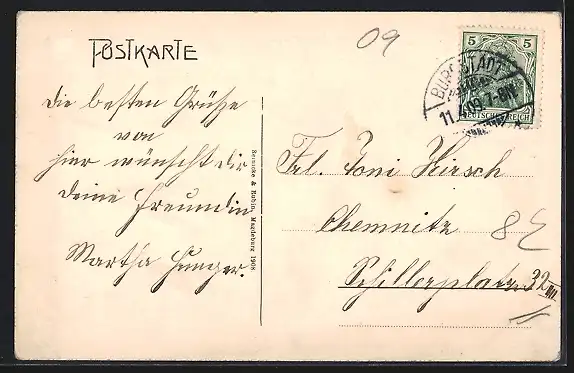 POSTKARTE
09
5 5
BURGSTÄDT
11. 09. 7-8N.
DEUTSCHES REICH
Die besten Grüße
von
hier wünscht dir
deine Freundin
Martha Hunger.
Reinicke & Rubin, Magdeburg 1908.
Frl. Toni Hirsch
Chemnitz
Schillerplatz 32 III